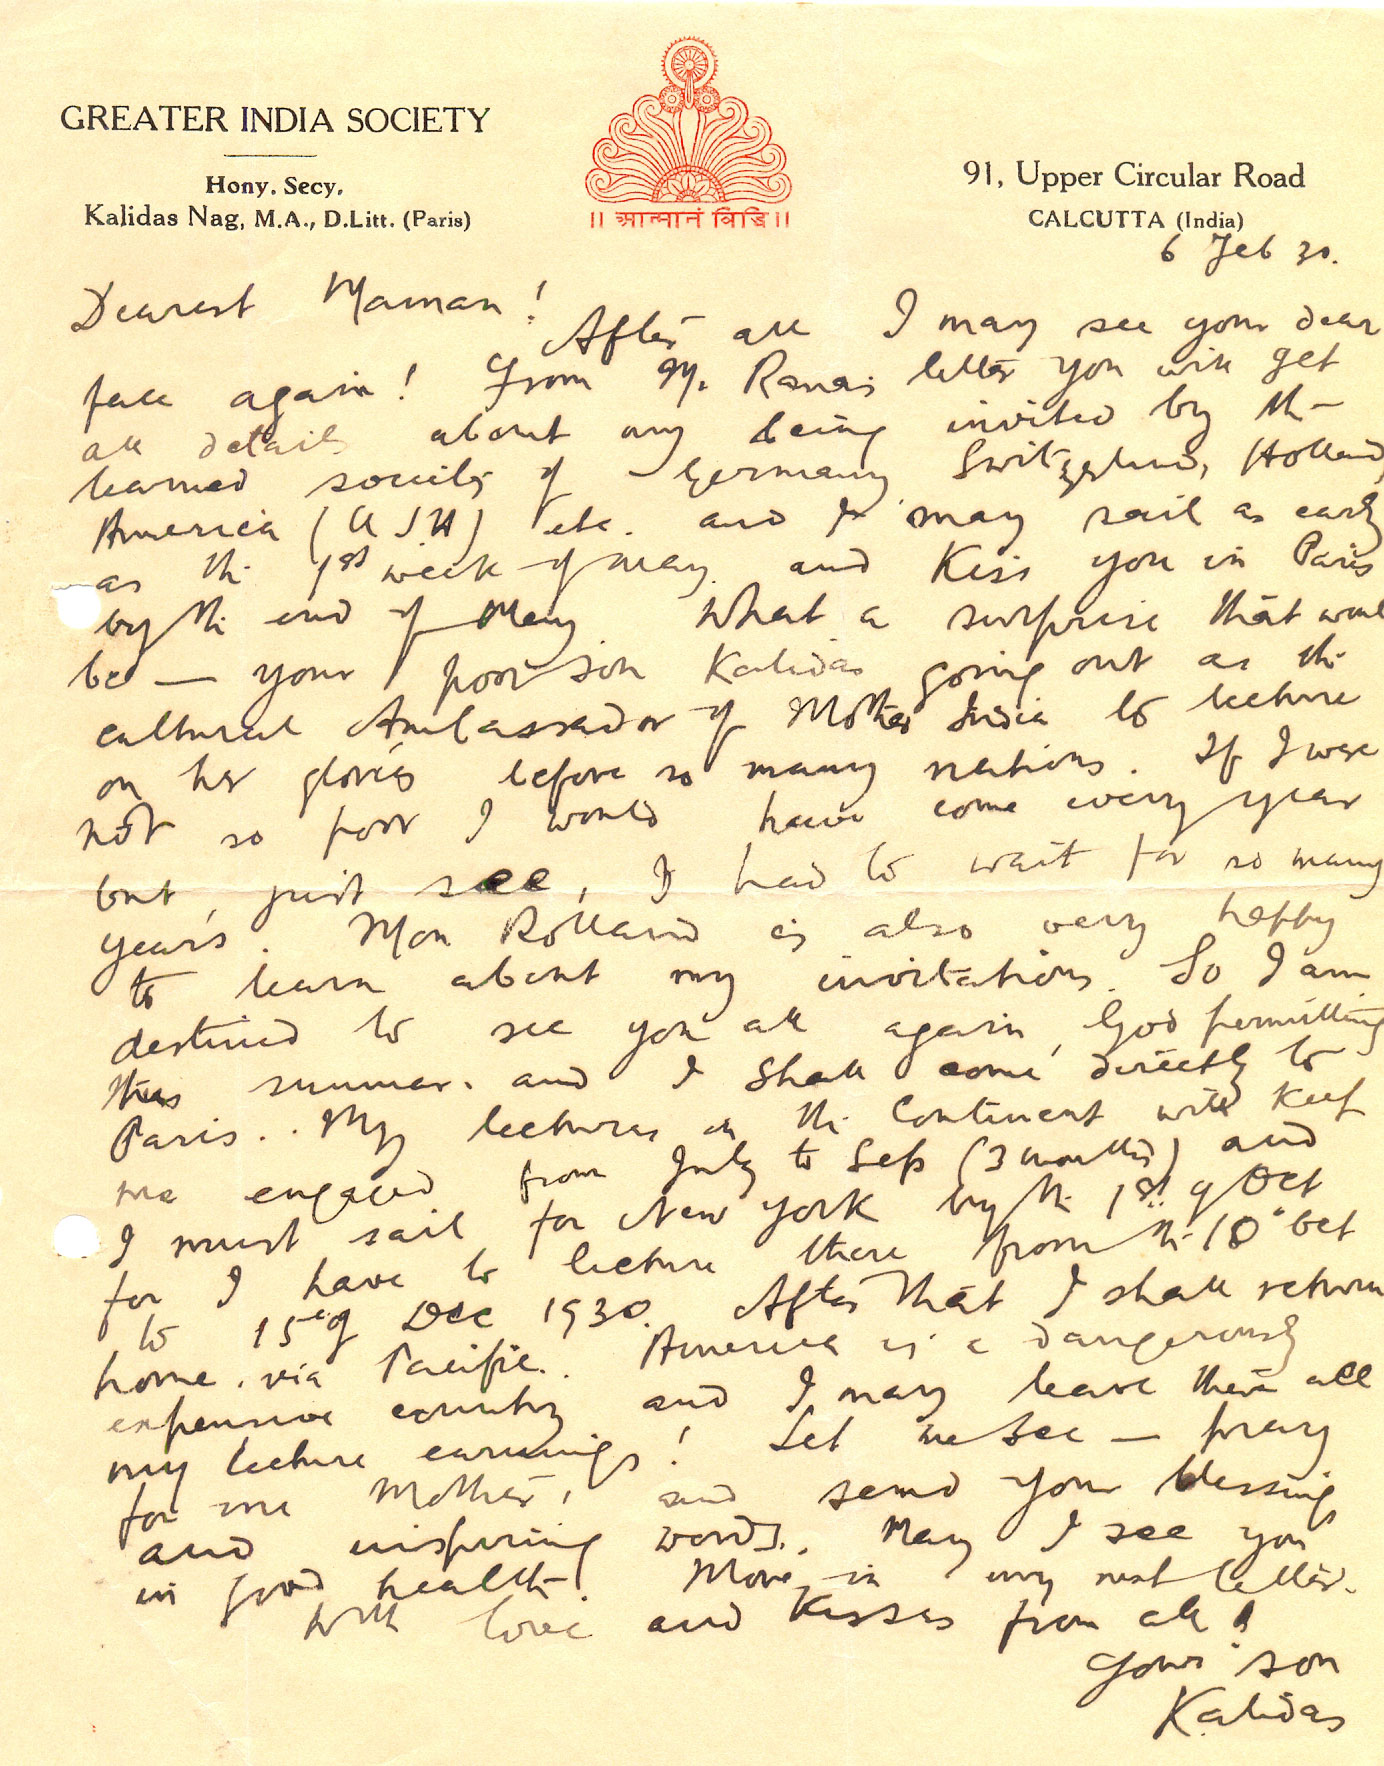 GREATER INDIA SOCIETY
Hony. Secy.
Kalidas Nag, M.A., D.Litt. (Paris)
।। आत्मानं विद्धि ।।
91, Upper Circular Road
CALCUTTA (India)
6 Feb 30.
Dearest Maman!
After all I may see your dear
face again! From M. Rana's letter you will get
all details about my being invited by the
learned society of Germany, Switzerland, Holland,
America (U S A) etc. and I may sail as early
as the 1st week of May and Kiss you in Paris
by the end of May. What a surprise that would
be — your poor son Kalidas going out as the
cultural Ambassador of Mother India to lecture
on her glories before so many nations. If I were
not so poor I would have come every year
but, just see, I had to wait for so many
years. Mon Rolland is also very happy
to learn about my invitations. So I am
destined to see you all again, God permitting
this summer. and I shall come directly to
Paris.. My lectures on the Continent will keep
me engaged from July to Sep (3 months) and
I must sail for New York by the 1st of Oct
for I have to lecture there from the 10th Oct
to 15th of Dec 1930. After that I shall return
home, via Pacific. America is a dangerously
expensive country and I may leave there all
my lecture earnings! Let me see — pray
for me Mother, and send your blessings
and inspiring words. May I see you
in good health! More in my next letter.
With love and Kisses from all!
Your son
Kalidas